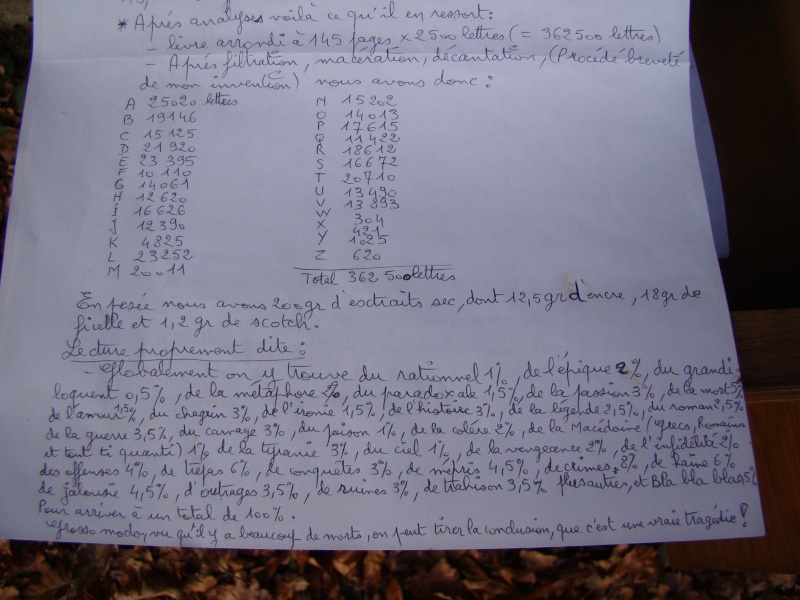 * Après analyses voilà ce qu'il en ressort:
- livre arrondi à 145 pages x 2500 lettres (= 362500 lettres)
- Après filtration, macération, décantation, (Procédé breveté
de mon invention) nous avons donc:
A 25020 lettres
B 19146
C 15125
D 21920
E 23395
F 10110
G 14061
H 12620
I 16626
J 12390
K 4825
L 23252
M 20011
N 15202
O 14013
P 17615
Q 11422
R 18612
S 16672
T 20710
U 13490
V 13893
W 304
X 421
Y 1025
Z 620
Total 362 500 lettres
En pesée nous avons 200gr d'extraits sec, dont 12,5gr d'encre, 18gr de
ficelle et 1,2 gr de scotch.
Lecture proprement dite:
- Globalement on y trouve du rationnel 1%, de l'épique 2%, du grandi-
loquent 0,5%, de la métaphore 2%, du paradoxale 1,5%, de la passion 3%, de la mort 5%
de l'amour 1,5%, du chagrin 3%, de l'ironie 1,5%, de l'histoire 3%, de la legende 2,5%, du roman 2,5%
de la guerre 3,5%, du carnage 3%, du poison 1%, de la colère 2%, de la Macédoine (grecs, Romains
et tout ti quanti) 1% de la tyranie 3%, du ciel 1%, de la vengeance 2%, de l'infidélité 2%
des offenses 4%, de trépas 6%, de conquêtes 3%, de mépris 4,5%, de crimes 8%, de haine 6%
de jalousie 4,5%, d'outrages 3,5%, de ruines 3%, de trahison 3,5% plus autres, et Bla bla bla 0,5%
Pour arriver à un total de 100%.
grosso modo, vu qu'il y a beaucoup de morts, on peut tirer la conclusion, que c'est une vraie tragédie!